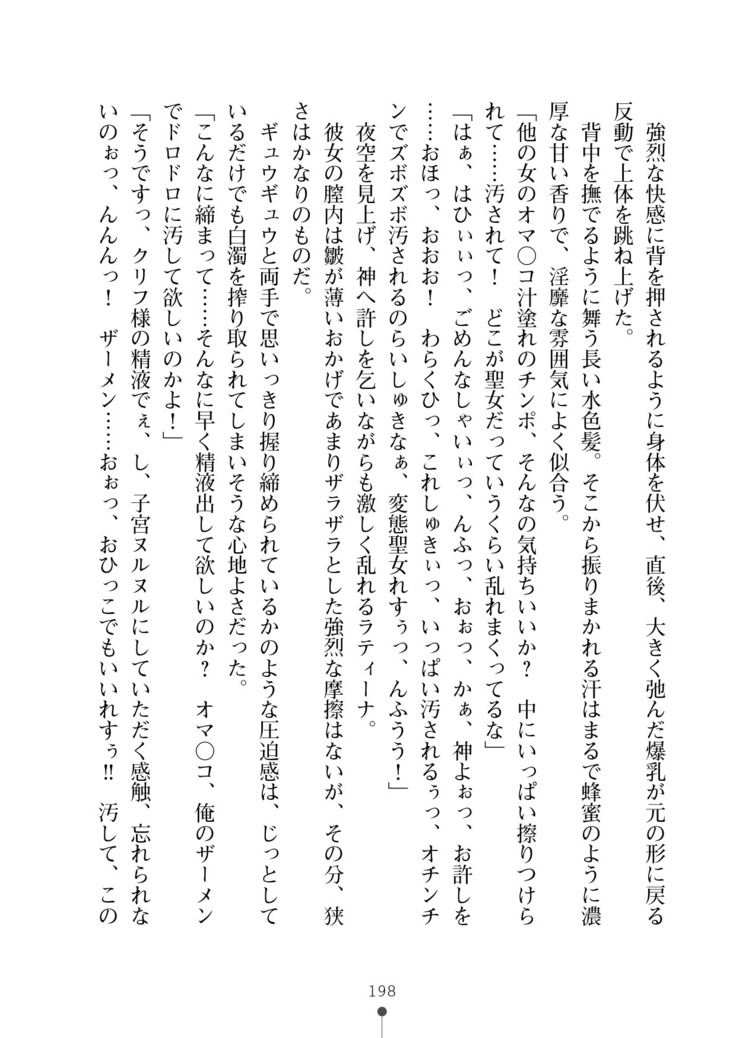 強烈な快感に背を押されるように身体を伏せ、直後、大きく弛んだ爆乳が元の形に戻る
反動で上体を跳ね上げた。
背中を撫でるように舞う長い水色髪。そこから振りまかれる汗はまるで蜂蜜のように濃
厚な甘い香りで、淫靡な雰囲気によく似合う。
「他の女のオマ〇コ汁塗れのチンポ、そんなの気持ちいいか？　中にいっぱい擦りつけら
れて……汚されて！　どこが聖女だっていうくらい乱れまくってるな」
「はぁ、はひぃぃっ、ごめんなしゃいぃっ、んふっ、おぉっ、かぁ、神よぉっ、お許しを
……おほっ、おおお！　わらくひっ、これしゅきぃっ、いっぱい汚されるぅっ、オチンチ
ンでズボズボ汚されるのらいしゅきなぁ、変態聖女れすぅっ、んふうう！」
夜空を見上げ、神へ許しを乞いながらも激しく乱れるラティーナ。
彼女の膣内は皺が薄いおかげであまりザラザラとした強烈な摩擦はないが、その分、狭
さはかなりのものだ。
ギュウギュウと両手で思いっきり握り締められているかのような圧迫感は、じっとして
いるだけでも白濁を搾り取られてしまいそうな心地よさだった。
「こんなに締まって……そんなに早く精液出して欲しいのか？　オマ〇コ、俺のザーメン
でドロドロに汚して欲しいのかよ！」
「そうですっ、クリフ様の精液でぇ、し、子宮ヌルヌルにしていただく感触、忘れられな
いのぉっ、んんんっ！　ザーメン……おぉっ、おひっこでもいいれすぅ!!　汚して、この
198